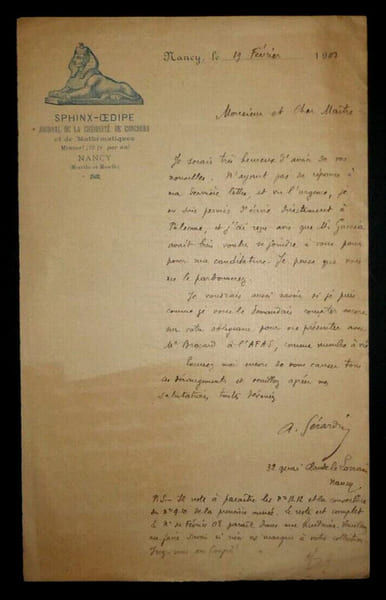 SPHINX-ŒDIPE
JOURNAL DE LA CURIOSITÉ, DE CONCOURS
et de Mathématiques
Mensuel
NANCY
(Meurthe-et-Moselle)
Nancy, le 19 Février 190
Monsieur et Cher Maître
Je serais très heureux d'avoir de vos
nouvelles. N'ayant pas de réponse à
ma dernière lettre, et vu l'urgence, je
me suis permis d'écrire directement à
Palerme, et j'ai reçu avis que M. Guccia
avait bien voulu se joindre à vous pour
ma candidature. Je pense que vous
me le pardonnerez.
Je voudrais aussi savoir si je puis
comme je vous le demandais compter encore
sur votre obligeance pour me présenter avec
Mr Brocard à l'AFAS, comme membre à vie
Excusez moi encore de vous causer tous
ces dérangements et veuillez agréer mes
salutations
A. Gérardin
32 quai Claude le Lorrain
Nancy
P.S. Il reste à paraître les Nos 11.12 et la couverture
de la première année. Le reste est complet
le No de Février 08 paraît dans une huitaine. Veuillez
me faire savoir si rien ne manque à votre collection